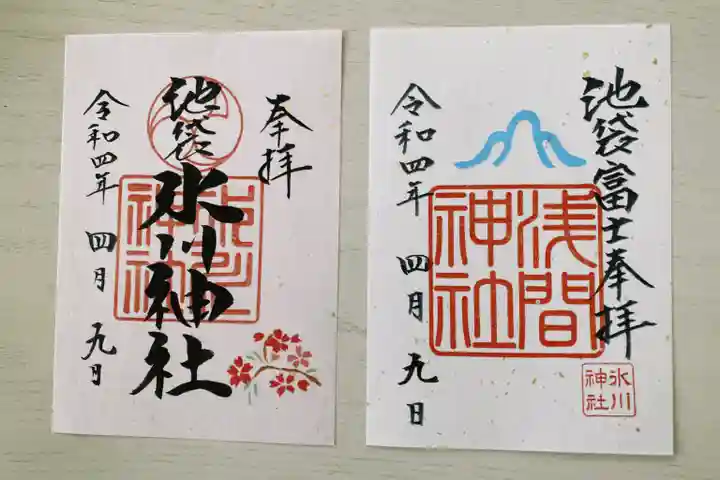 奉拝
池袋
氷川神社
氷川神社
令和四年 四月 九日
池袋富士奉拝
浅間神社
氷川神社
令和四年 四月 九日